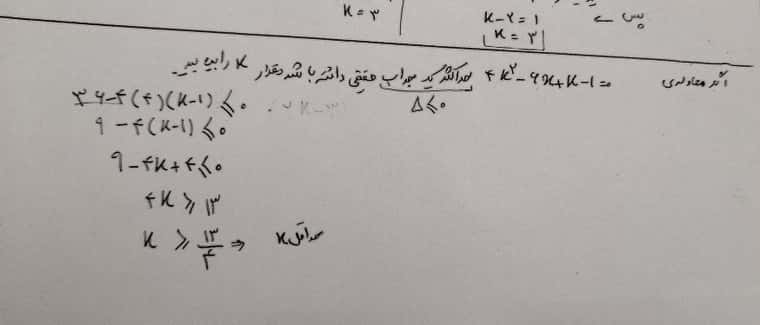 پس ⇐ K-2=1 K=3
K=3
اگر معادله‌ی ۴x²-۶x+K-1=0 حداکثر یک جواب حقیقی داشته باشد مقدار K را بیابید.
Δ≤0
۳۶-۴(۴)(K-1)≤0
۹-۴(K-1)≤0
۹-۴K+۴≤0
۴K≥۱۳
K≥۱۳/۴ ⇒ حداقل K